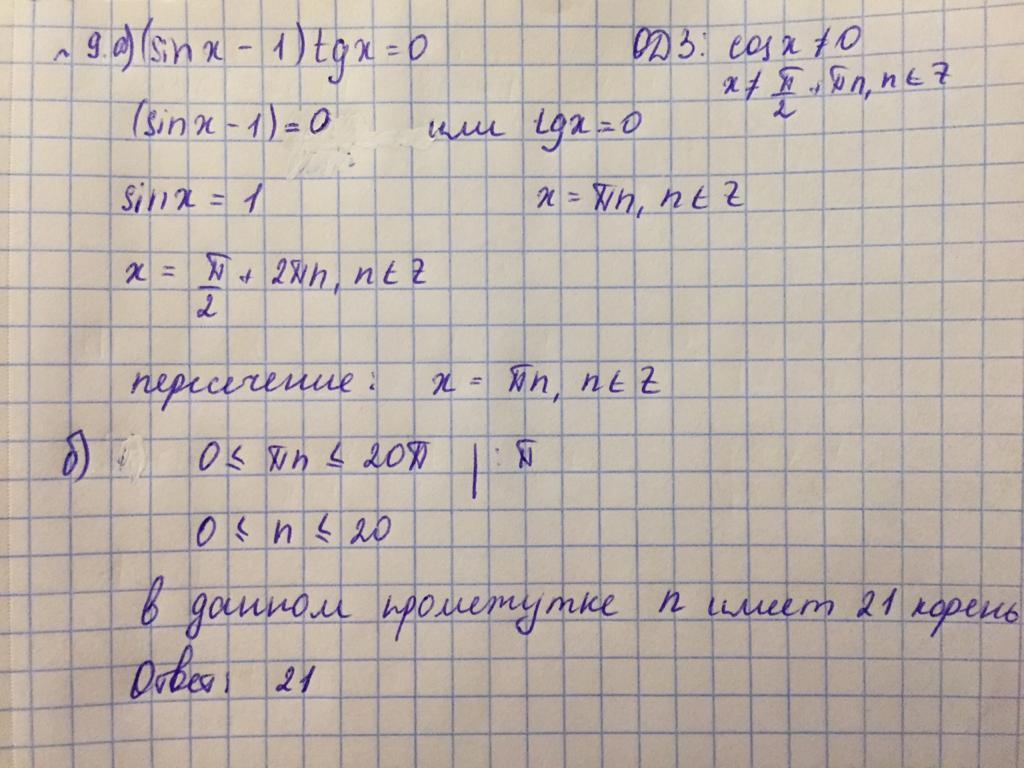 № 9. а) (sin x - 1) tg x = 0 ОДЗ: cos x ≠ 0
x ≠ π/2 + πn, n ∈ Z
(sin x - 1) = 0 или tg x = 0
sin x = 1 x = πn, n ∈ Z
x = π/2 + 2πn, n ∈ Z
пересечение: x = πn, n ∈ Z
б) 0 ≤ πn ≤ 20π | : π
0 ≤ n ≤ 20
в данном промежутке n имеет 21 корень
Ответ: 21